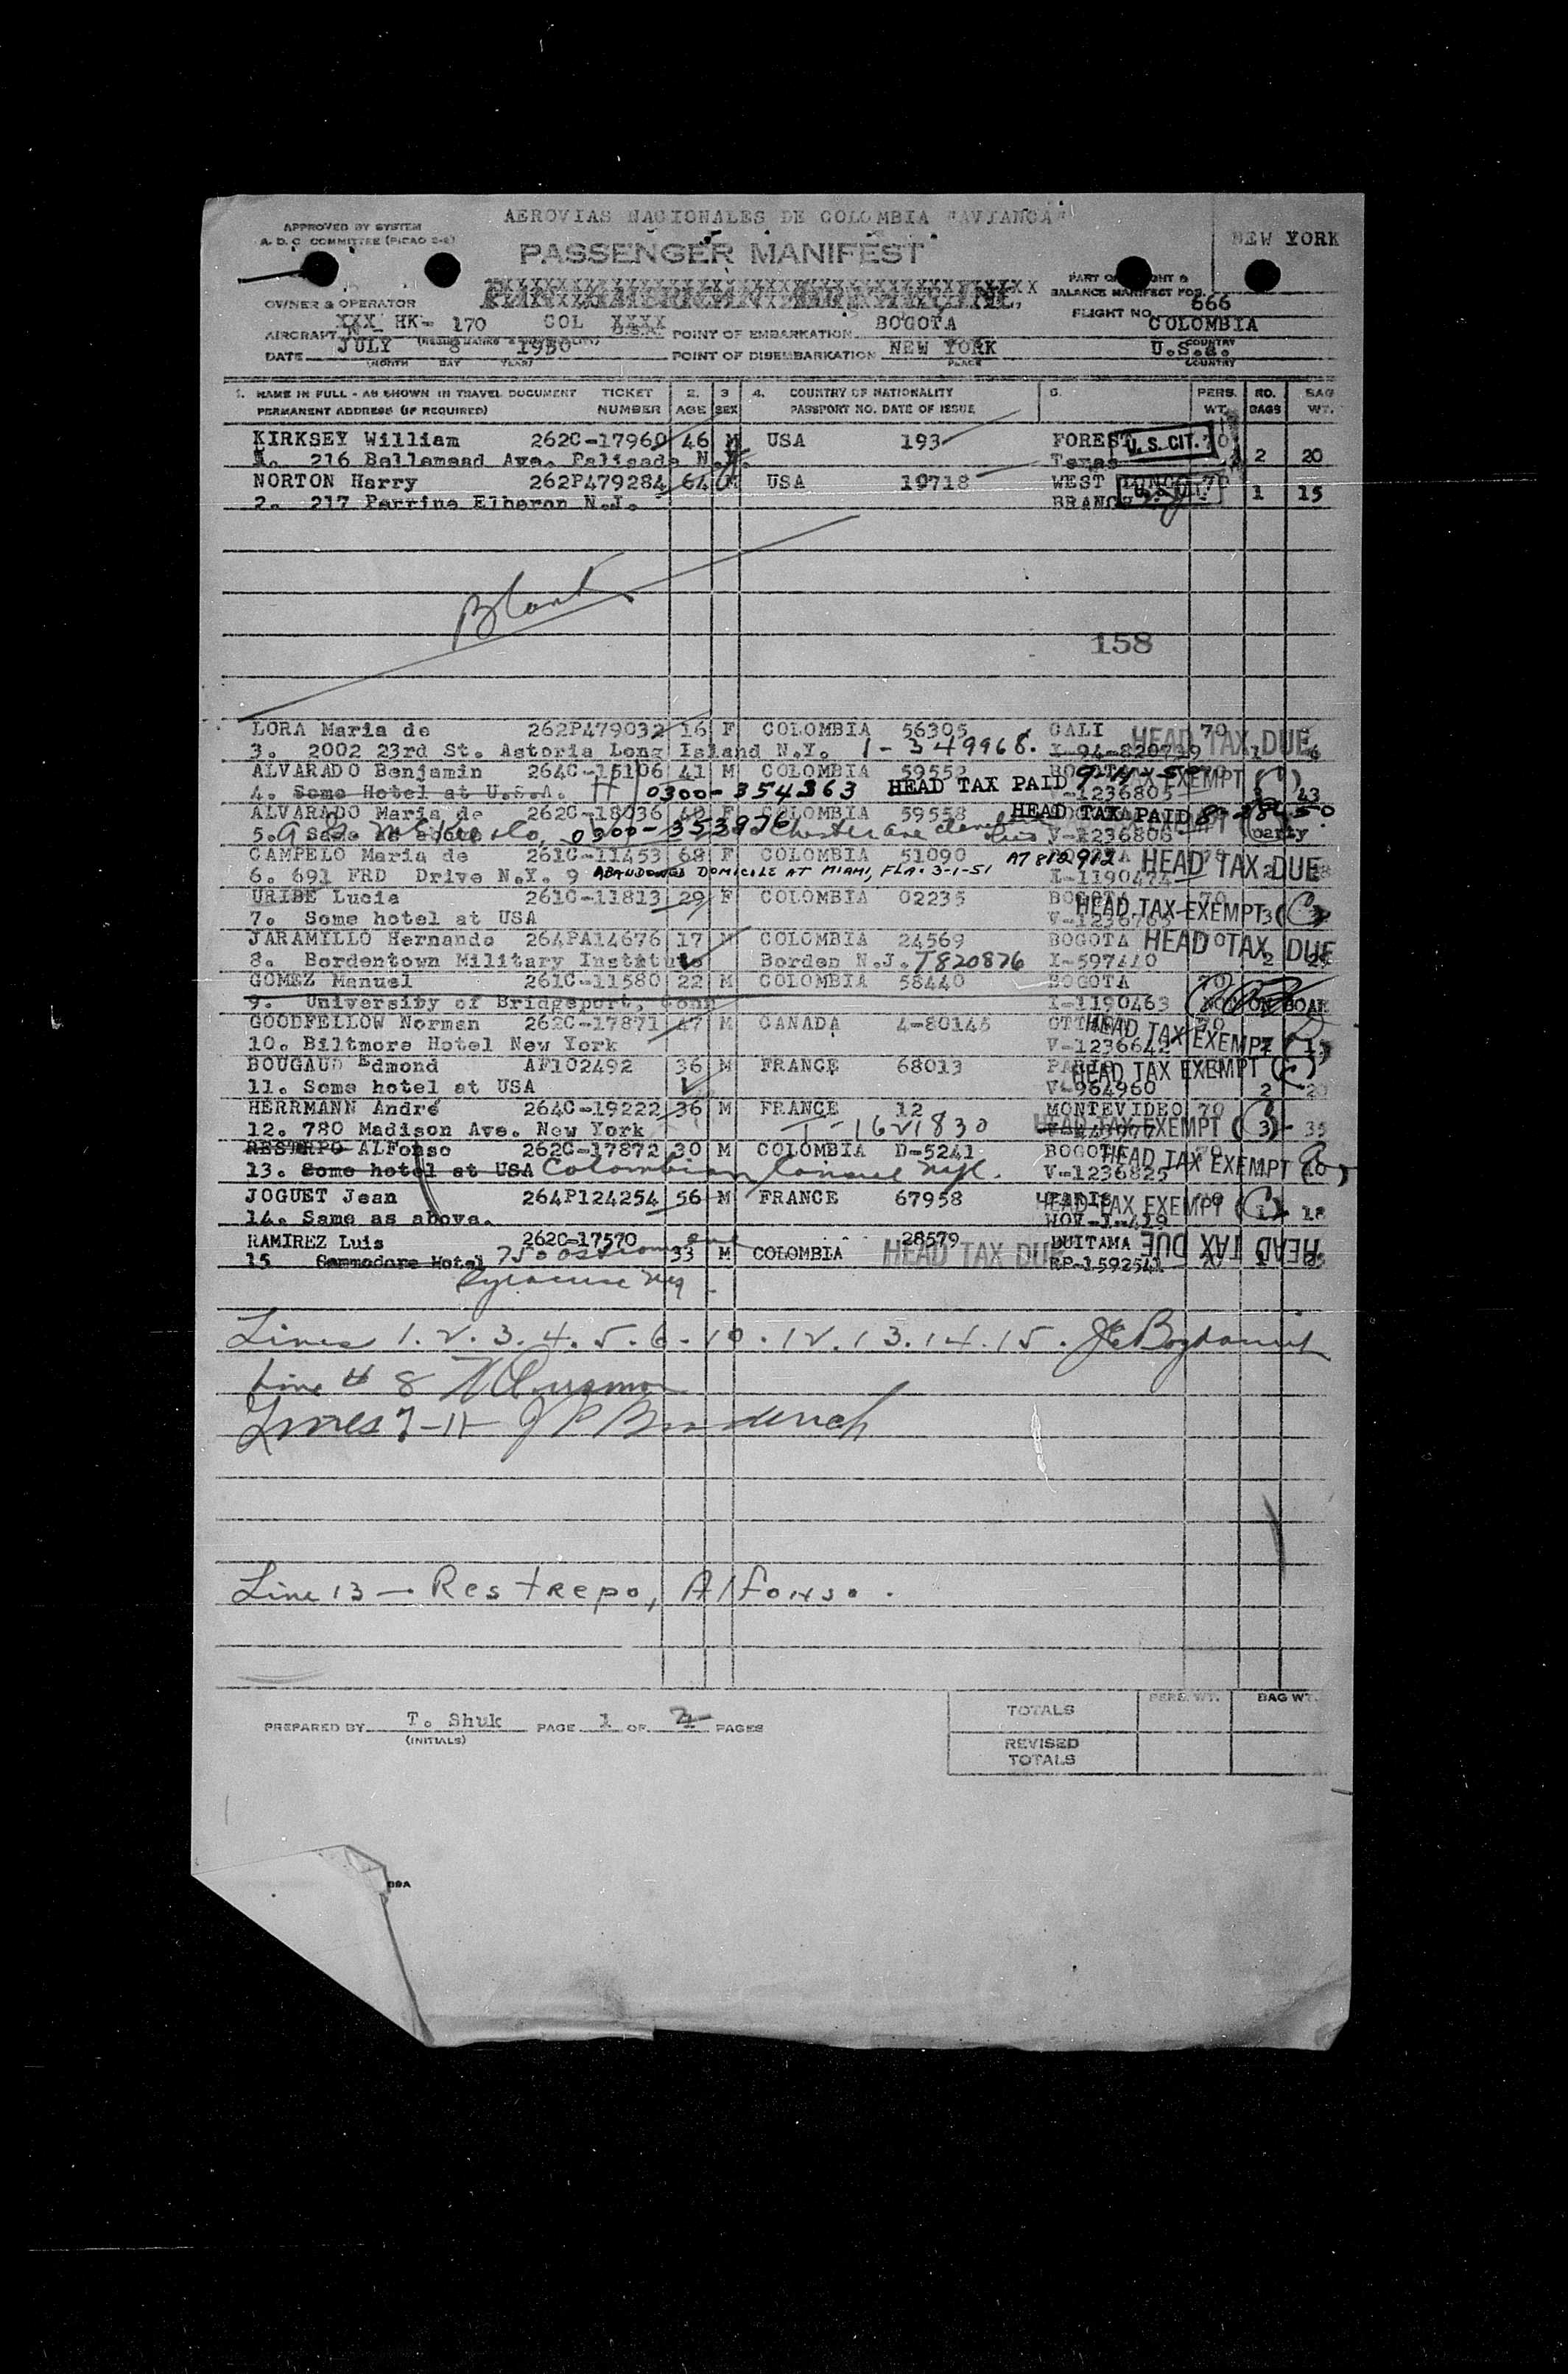 AEROVIAS NACIONALES DE COLOMBIA "AVIANCA"
APPROVED BY SYSTEM
A. D. C. COMMITTEE (PICAO 2-6)
PASSENGER MANIFEST
NEW YORK
OWNER & OPERATOR
PART OF WEIGHT &
BALANCE MANIFEST FOR
FLIGHT NO. 666
AIRCRAFT XXX HK- 170 COL XXXX POINT OF EMBARKATION BOGOTA COLOMBIA
DATE JULY 8 1950 POINT OF DISEMBARKATION NEW YORK U.S.A.
(MONTH DAY YEAR) PLACE COUNTRY
1. NAME IN FULL - AS SHOWN IN TRAVEL DOCUMENT TICKET 2. 3 4. COUNTRY OF NATIONALITY 5. PERS. NO. BAG
PERMANENT ADDRESS (IF REQUIRED) NUMBER AGE SEX PASSPORT NO. DATE OF ISSUE WT. BAGS WT.
KIRKSEY William 262C-17960 46 M USA 193 FOREST U. S. CIT. 70
1. 216 Bellemead Ave. Palisade N.J. Texas 2 20
NORTON Harry 262P479284 64 M USA 19718 WEST LONG 70
2. 217 Perrine Elberon N.J. BRANCH 1 15
Blank
158
LORA Maria de 262P479032 16 F COLOMBIA 56305 CALI 70 HEAD TAX DUE
3. 2002 23rd St. Astoria Long Island N.Y. 1-349968. I-94-820739 1 6
ALVARADO Benjamin 264C-15106 41 M COLOMBIA 59559 TAX EXEMPT (C)
4. Some Hotel at U.S.A. H 0300-354363 HEAD TAX PAID V-1236805 43
ALVARADO Maria de 262C-18036 40 F COLOMBIA 59558 HEAD TAX PAID
5. Same 0300-353976 Chester ave V-1236806 party
CAMPELO Maria de 261C-11453 68 F COLOMBIA 51090 A7812912 HEAD TAX DUE
6. 691 FRD Drive N.Y. 9 ABANDONED DOMICILE AT MIAMI, FLA. 3-1-51 I-1190474 2
URIBE Lucia 261C-11813 29 F COLOMBIA 02235 BOGOTA 70
7. Some hotel at USA HEAD TAX EXEMPT 3 (C)
JARAMILLO Hernando 264PA14676 17 M COLOMBIA 24569 BOGOTA HEAD TAX DUE
8. Bordentown Military Institute Borden N.J. T820876 I-597440 2
GOMEZ Manuel 261C-11580 22 M COLOMBIA 58440 BOGOTA 70
9. University of Bridgeport, Conn I-1190463 NOT ON BOARD
GOODFELLOW Norman 262C-17871 47 M CANADA 4-80145 HEAD TAX EXEMPT
10. Biltmore Hotel New York V-1236642
BOUGAUD Edmond AF102492 36 M FRANCE 68013 PARIS HEAD TAX EXEMPT (C)
11. Some hotel at USA V-964960 2 20
HERRMANN André 264C-19222 36 M FRANCE 12 MONTEVIDEO 70
12. 780 Madison Ave. New York T-1621830 HEAD TAX EXEMPT 3 35
RESTERPO ALFonso 262C-17872 30 M COLOMBIA D-5241 BOGOTA HEAD TAX EXEMPT
13. Some hotel at USA Colombian Consul NYC. V-1236825
JOGUET Jean 264P124254 56 M FRANCE 67958 PARIS HEAD TAX EXEMPT (C)
14. Same as above. WOV-I-419 1 18
RAMIREZ Luis 262C-17570 33 M COLOMBIA 28579 DUITAMA HEAD TAX DUE
15 Commodore Hotel 750 HEAD TAX DUE RP-1592541
Syracuse NY
Lines 1.2.3.4.5.6-10.12.13.14.15.
Line # 8
Lines 7-11
Line 13 - Restrepo, Alfonso.
PREPARED BY T. Shuk PAGE 1 OF 2 PAGES
(INITIALS)
PERS. WT. BAG WT.
TOTALS
REVISED
TOTALS